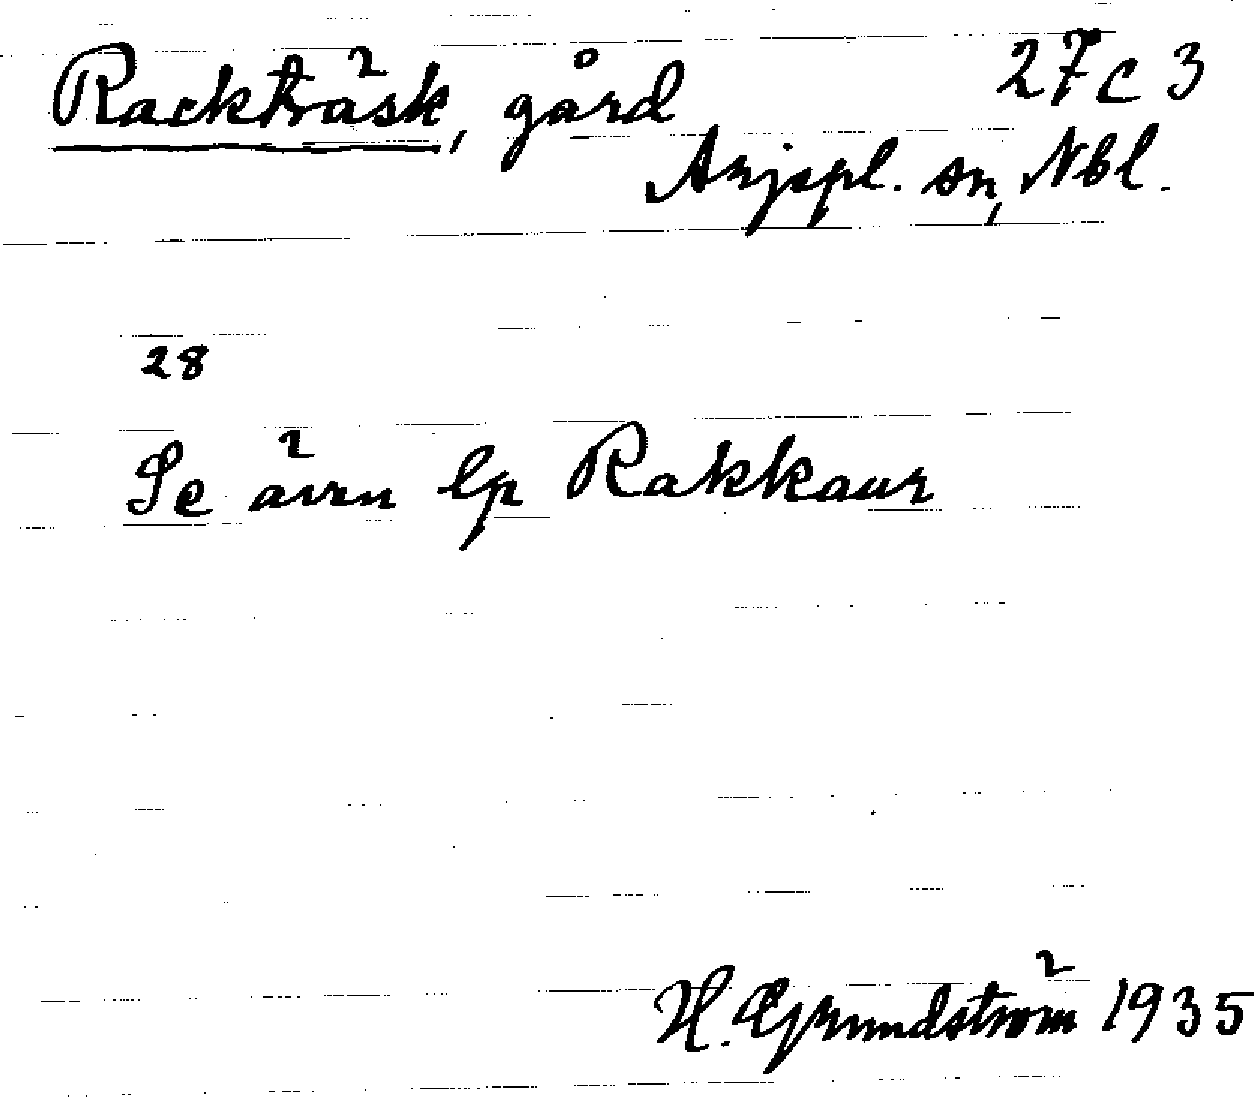 Rackträsk, gård 27c 3
Arjepl. sn, Nbl.
28
Se även lp Rakkaur
H. Grundström 1935